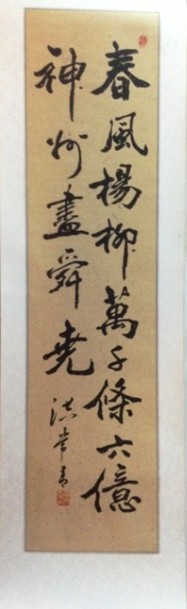 春風楊柳萬千條六億
神州盡舜堯
洪常青